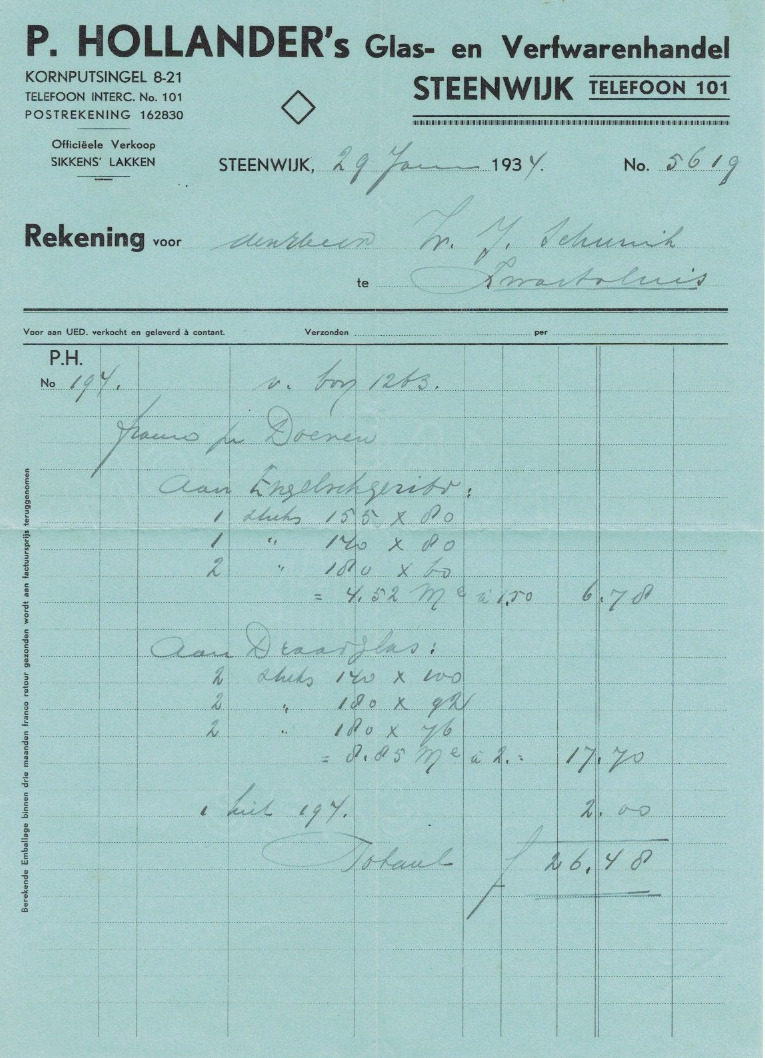 P. HOLLANDER's Glas- en Verfwarenhandel
KORNPUTSINGEL 8-21
TELEFOON INTERC. No. 101
POSTREKENING 162830
STEENWIJK TELEFOON 101
Officiëele Verkoop
SIKKENS' LAKKEN
STEENWIJK, 29 Jan 1934. No. 5619
Rekening voor W. J. Schurink
te
Voor aan UED. verkocht en geleverd à contant. Verzonden per
P.H.
No 194. v. bon 1263.
franco pr Doeven
Aan Engelschgeribd:
1 stuks 155 x 80
1 " 140 x 80
2 " 180 x 60
= 4.52 M² à 1.50 6.78
Aan Draadglas:
2 stuks 140 x 100
2 " 180 x 92
2 " 180 x 76
= 8.85 M² à 2.= 17.70
1 kist 194. 2.00
Totaal f 26.48
Berekende Emballage binnen drie maanden franco retour gezonden wordt aan factuursprijs teruggenomen